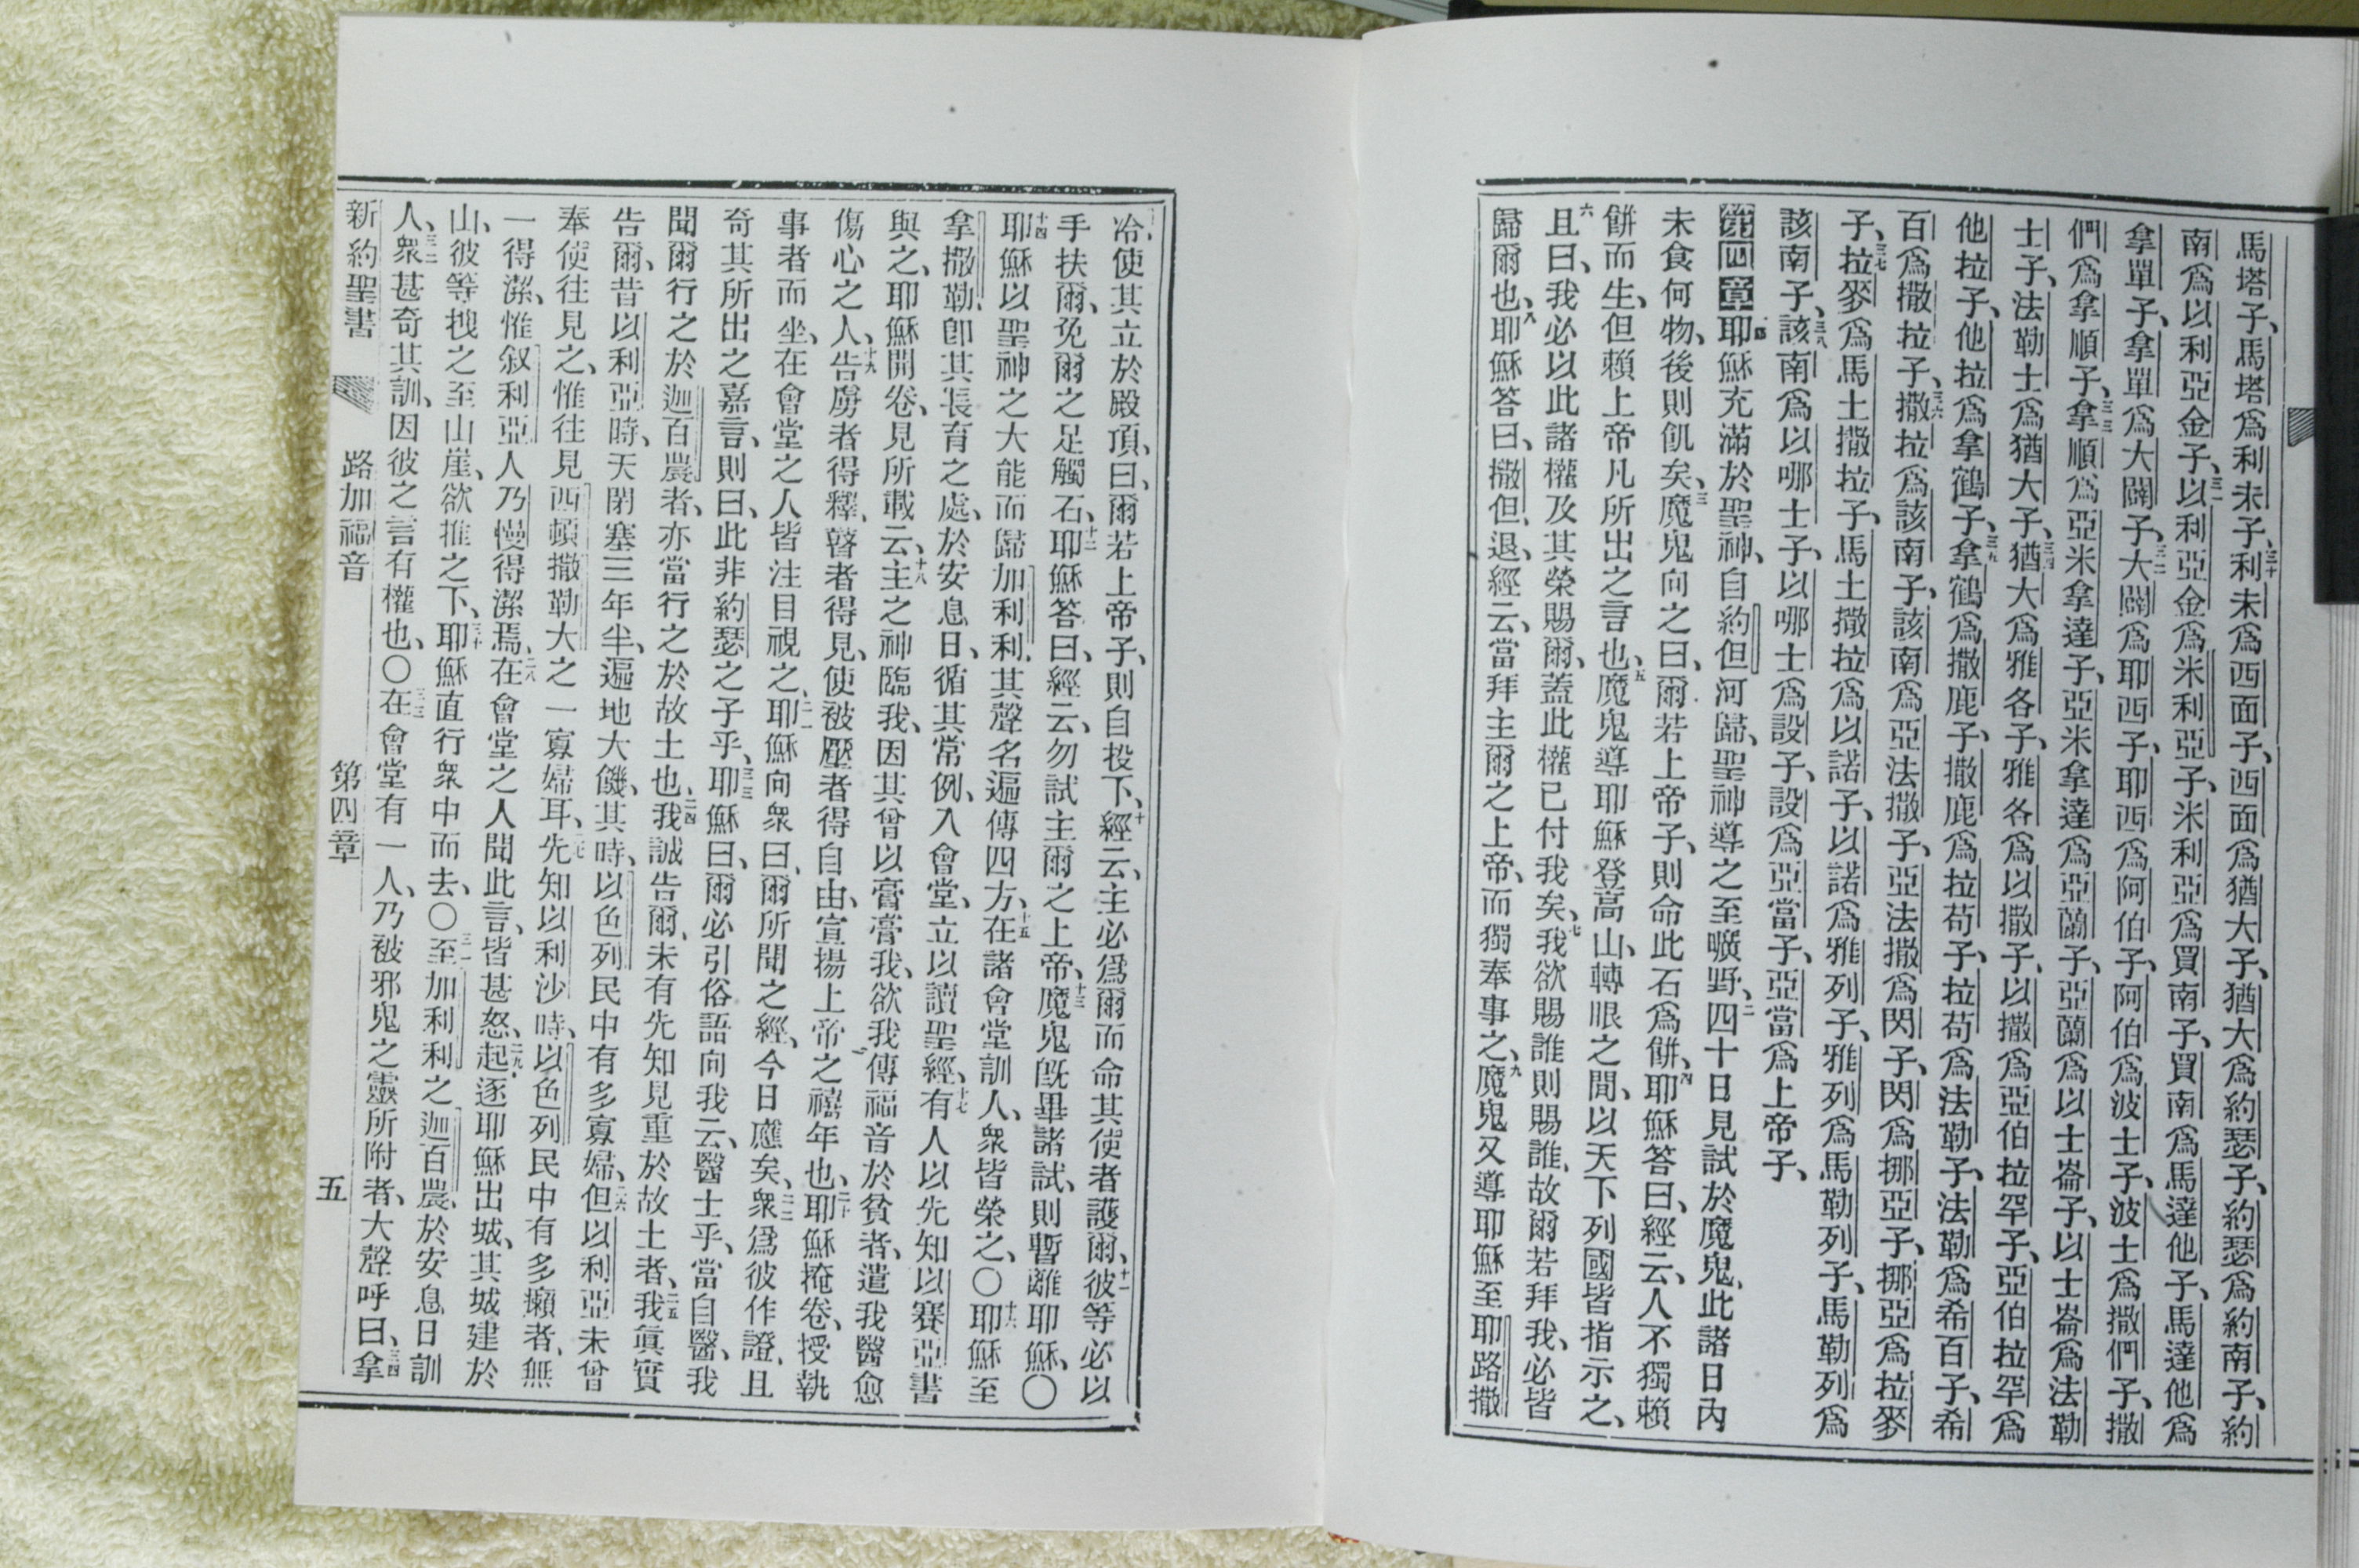 馬塔子、馬塔爲利未子、三十利未爲西面子、西面爲猶大子、猶大爲約瑟子、約瑟爲約南子、約
南爲以利亞金子、三一以利亞金爲米利亞子、米利亞爲買南子、買南爲馬達他子、馬達他爲
拿單子、拿單爲大闢子、三二大闢爲耶西子、耶西爲阿伯子、阿伯爲波士子、波士爲撒們子、撒
們爲拿順子、三三拿順爲亞米拿達子、亞米拿達爲亞蘭子、亞蘭爲以士崙子、以士崙爲法勒
士子、法勒士爲猶大子、三四猶大爲雅各子、雅各爲以撒子、以撒爲亞伯拉罕子、亞伯拉罕爲
他拉子、他拉爲拿鶴子、三五拿鶴爲撒鹿子、撒鹿爲拉苟子、拉苟爲法勒子、法勒爲希百子、希
百爲撒拉子、三六撒拉爲該南子、該南爲亞法撒子、亞法撒爲閃子、閃爲挪亞子、挪亞爲拉麥
子、三七拉麥爲馬土撒拉子、馬土撒拉爲以諾子、以諾爲雅列子、雅列爲馬勒列子、馬勒列爲
該南子、三八該南爲以哪士子、以哪士爲設子、設爲亞當子、亞當爲上帝子、
第四章 耶穌充滿於聖神、自約但河歸、聖神導之至曠野、二四十日見試於魔鬼、此諸日內
未食何物、後則飢矣、三魔鬼向之曰、爾若上帝子、則命此石爲餅、四耶穌答曰、經云、人不獨賴
餅而生、但賴上帝凡所出之言也、五魔鬼導耶穌登高山、轉眼之間、以天下列國皆指示之、
六且曰、我必以此諸權及其榮賜爾、蓋此權已付我矣、七我欲賜誰則賜誰、故爾若拜我、必皆
歸爾也、八耶穌答曰、撒但、退、經云、當拜主爾之上帝、而獨奉事之、九魔鬼又導耶穌至耶路撒
冷、使其立於殿頂、曰、爾若上帝子、則自投下、十經云、主必爲爾而命其使者護爾、十一彼等必以
手扶爾、免爾之足觸石、十二耶穌答曰、經云、勿試主爾之上帝、十三魔鬼旣畢諸試、則暫離耶穌、〇
十四耶穌以聖神之大能而歸加利利、其聲名遍傳四方、十五在諸會堂訓人、衆皆榮之、〇十六耶穌至
拿撒勒、卽其長育之處、於安息日、循其常例、入會堂、立以讀聖經、十七有人以先知以賽亞書
與之、耶穌開卷、見所載云、十八主之神臨我、因其曾以膏膏我、欲我傳福音於貧者、遣我醫愈
傷心之人、十九告虜者得釋、瞽者得見、使被壓者得自由、宣揚上帝之禧年也、二十耶穌掩卷、授執
事者而坐、在會堂之人皆注目視之、二一耶穌向衆曰、爾所聞之經、今日應矣、二二衆爲彼作證、且
奇其所出之嘉言、則曰、此非約瑟之子乎、二三耶穌曰、爾必引俗語向我云、醫士乎、當自醫、我
聞爾行之於迦百農者、亦當行之於故土也、二四我誠告爾、未有先知見重於故土者、二五我眞實
告爾、昔以利亞時、天閉塞三年半、遍地大饑、其時、以色列民中有多寡婦、二六但以利亞未曾
奉使往見之、惟往見西頓撒勒大之一寡婦耳、二七先知以利沙時、以色列民中有多癩者、無
一得潔、惟叙利亞人乃慢得潔焉、二八在會堂之人聞此言、皆甚怒、二九起逐耶穌出城、其城建於
山、彼等拽之至山崖、欲推之下、三十耶穌直行衆中而去、〇三一至加利利之迦百農、於安息日訓
人、三二衆甚奇其訓、因彼之言有權也、〇三三在會堂有一人、乃被邪鬼之靈所附者、大聲呼曰、三四拿
新約聖書 路加福音 第四章 五